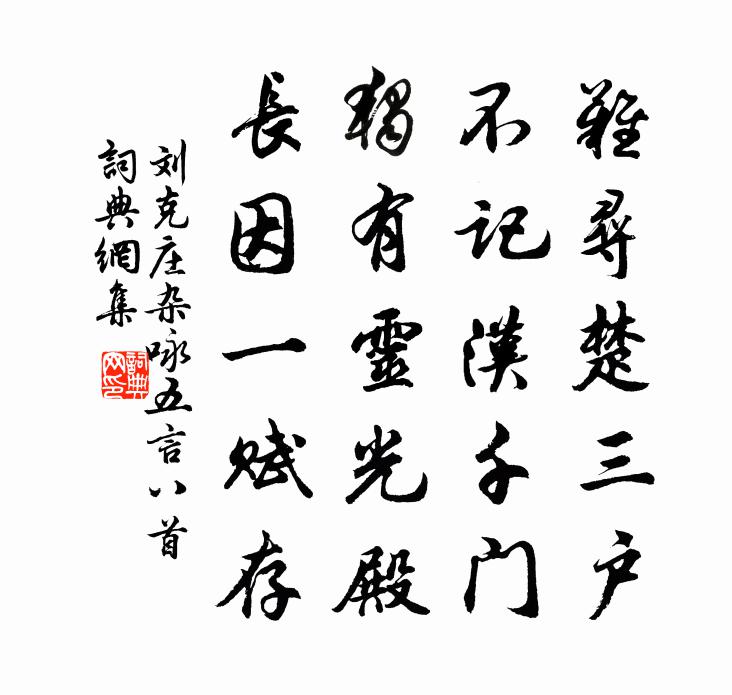 難尋楚三户
不記漢千门
獨有靈光殿
長因一赋存
刘克庄杂咏五言八首
詞典網集
詞典网印